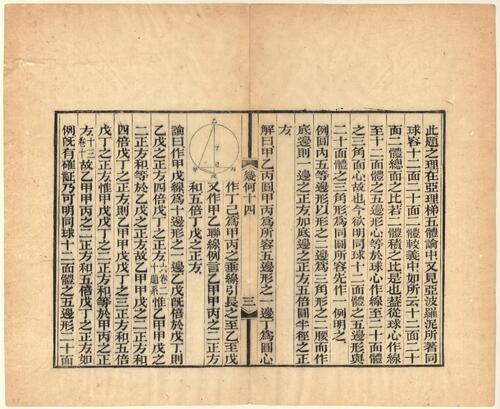 此題之理在亞理梯五體論中又見亞波羅泥所著同
球容十二面二十面二體較義中如所云十二面二十
面二體總面之比若二體積之比是也蓋從球心作線
至十二面體之五邊形心等於球心作線至二十面體
之三角面心故也今欲明同球十二面體之五邊形與
二十面體之三角形爲同圜所容先作一例明之
例圜內五等邊形以形之二邊爲三角形之二腰而作
底邊則一邊之正方如底邊之正方五倍圜半徑之正
方
解曰甲乙丙圜甲丙爲所容五邊形之一邊丁爲圜心
幾何十四
三
作丁己爲甲丙之垂線引長之至乙至戊
又作甲乙聯線例言乙甲甲丙之二正方
和五倍丁戊之正方
論曰作甲戊線爲十邊形之一邊乙戊旣倍於戊丁則
乙戊之正方四倍戊丁之正方六卷二十題系惟乙甲甲戊之
二正方和等於乙戊之正方故乙甲甲戊之二正方和
四倍戊丁之正方則乙甲甲戊戊丁之三正方和五倍
戊丁之正方惟甲戊戊丁之二正方和等於甲丙之正
方十三卷十故乙甲甲丙之二正方和五倍戊丁之正方如
例旣有確証乃可明同球十二面體之五邊形二十面